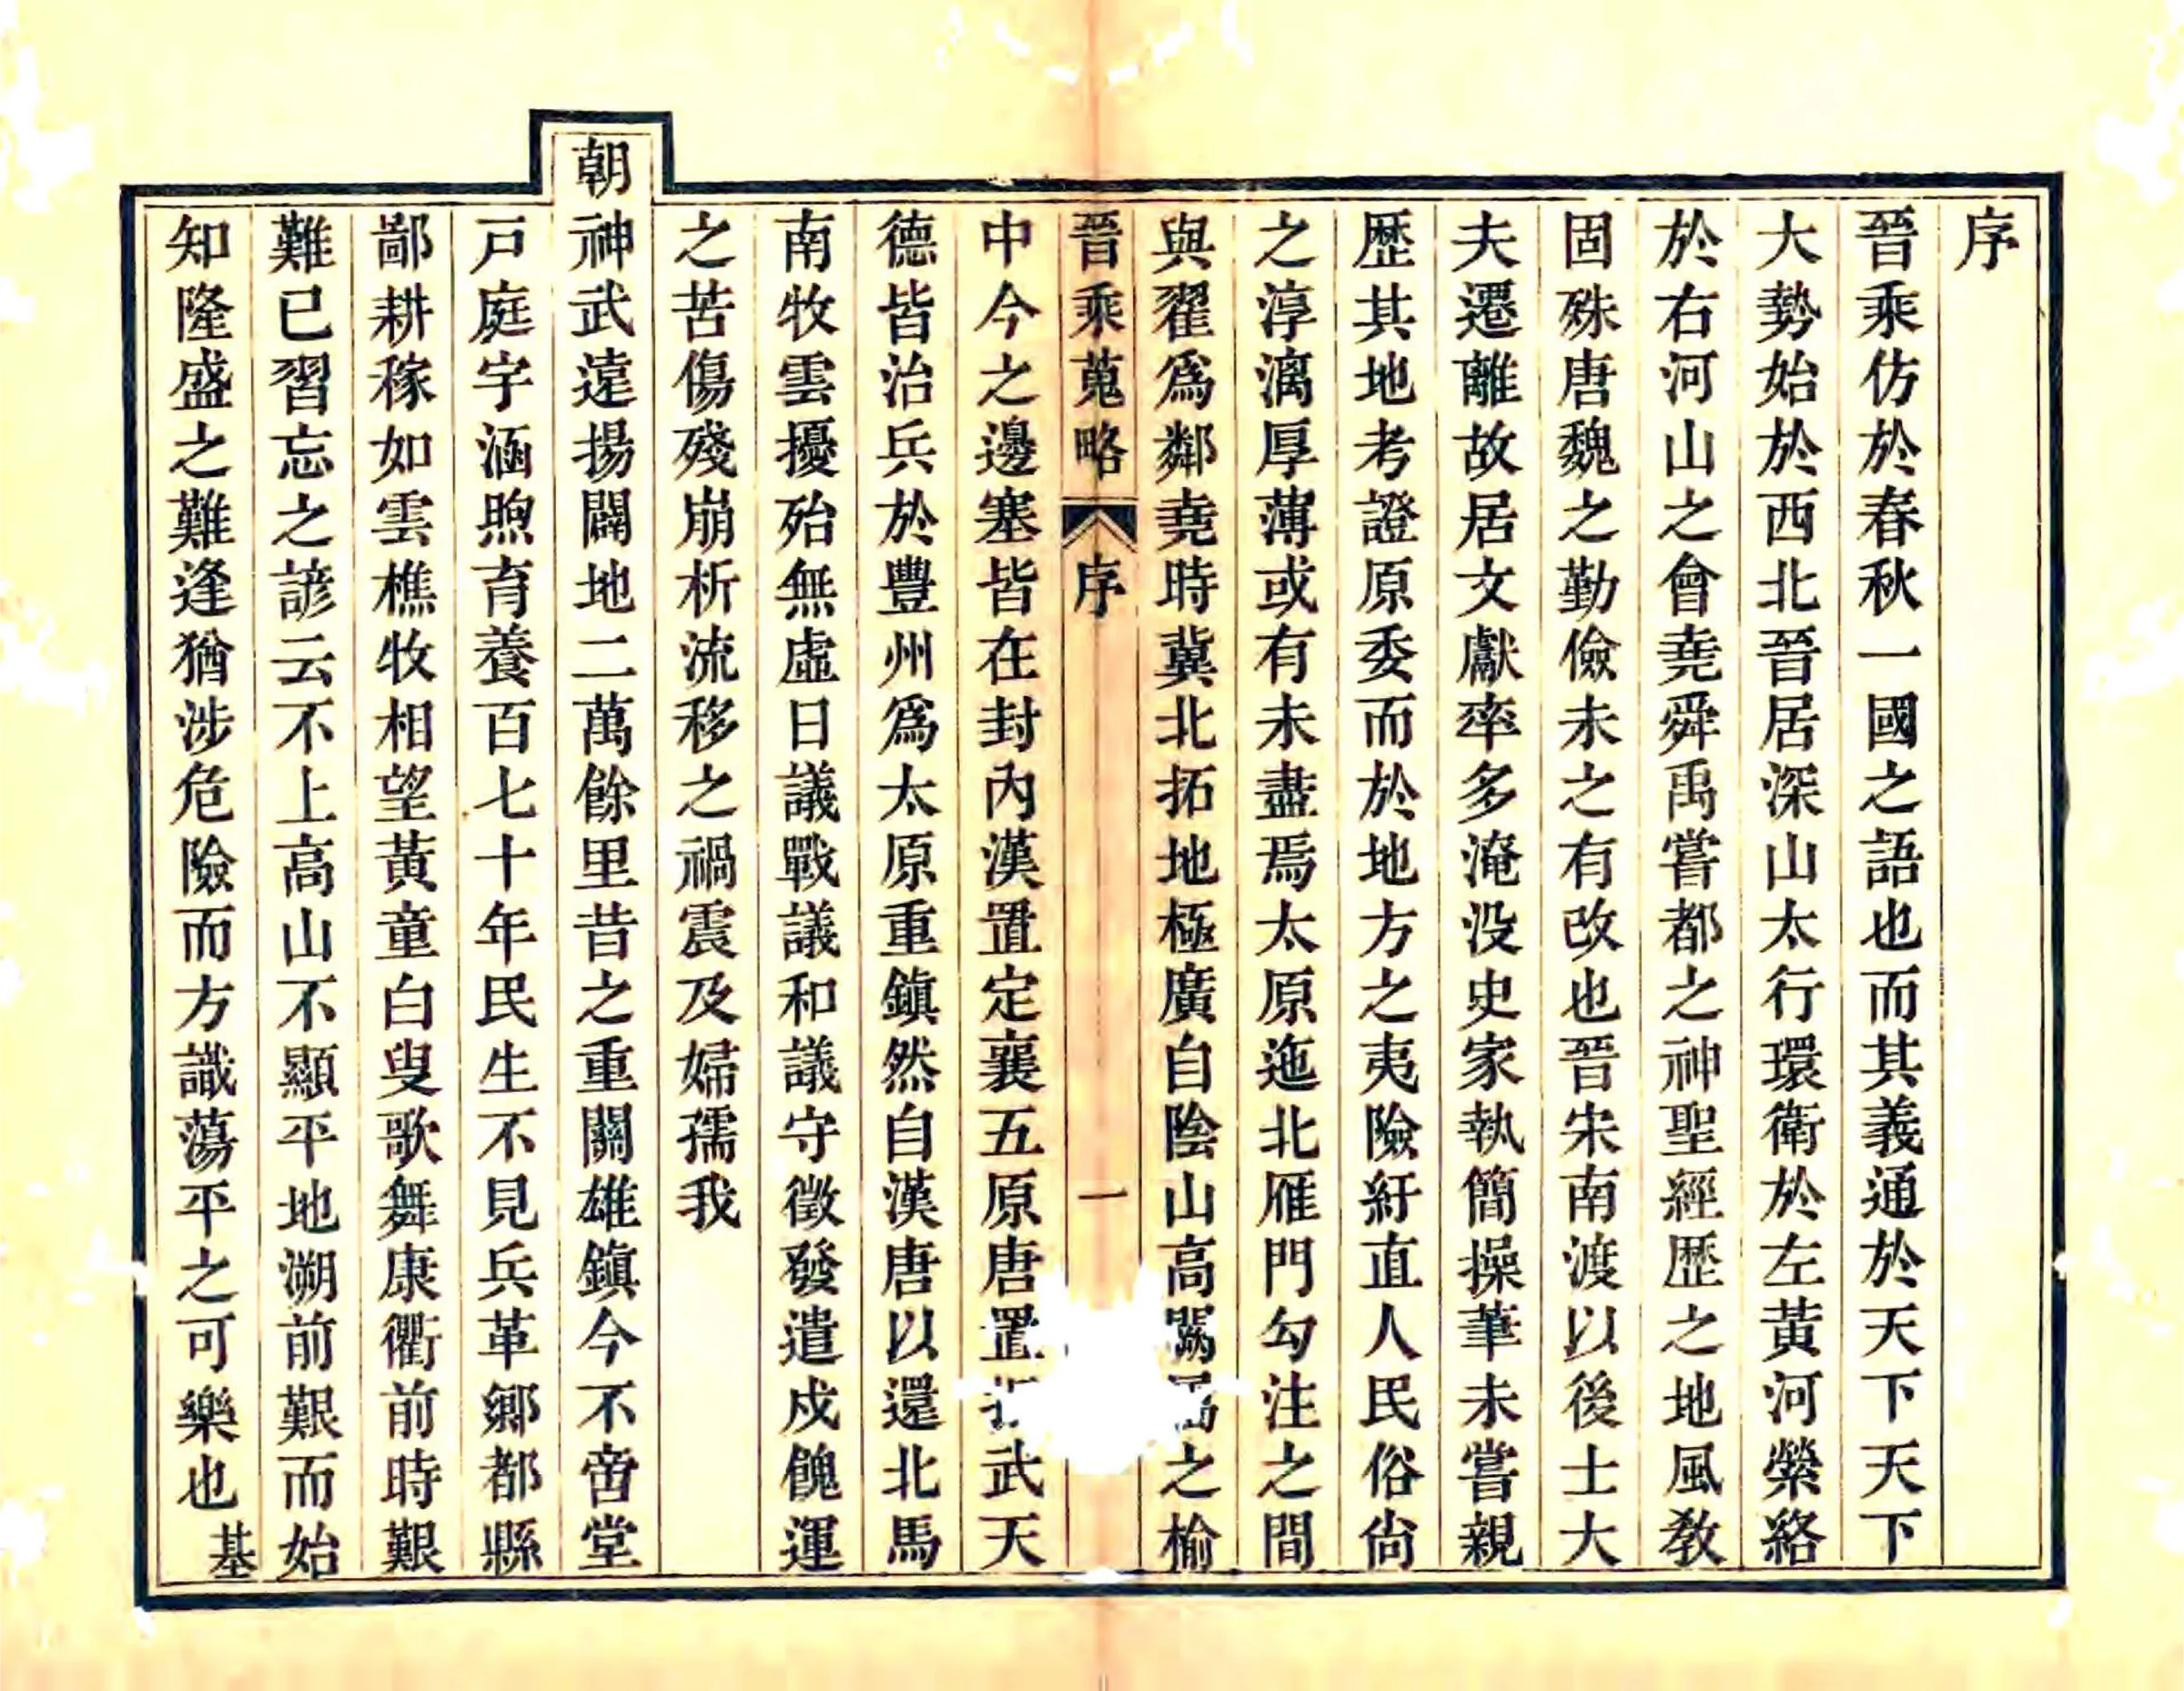 序
晉乘仿於春秋一國之語也而其義通於天下天下
大勢始於西北晉居深山太行環衛於左黃河縈絡
於右河山之會堯舜禹嘗都之神聖經歷之地風教
固殊唐魏之勤儉未之有改也晉宋南渡以後士大
夫遷離故居文獻率多淹没史家執簡操筆未嘗親
歷其地考證原委而於地方之夷險紆直人民俗尙
之淳漓厚薄或有未盡焉太原迤北雁門勾注之間
與翟爲鄰堯時冀北拓地極廣自陰山高闕之榆
晉乘蒐略 序 一
中今之邊塞皆在封內漢置定襄五原唐置武天
德皆治兵於豐州爲太原重鎮然自漢唐以還北馬
南牧雲擾殆無虛日議戰議和議守徵發遣戍餽運
之苦傷殘崩析流移之禍震及婦孺我
朝神武遠揚闢地二萬餘里昔之重關雄鎮今不啻堂
戸庭宇涵煦育養百七十年民生不見兵革鄉都縣
鄙耕稼如雲樵牧相望黃童白叟歌舞康衢前時艱
難已習忘之諺云不上高山不顯平地溯前艱而始
知隆盛之難逢猶涉危險而方識蕩平之可樂也基